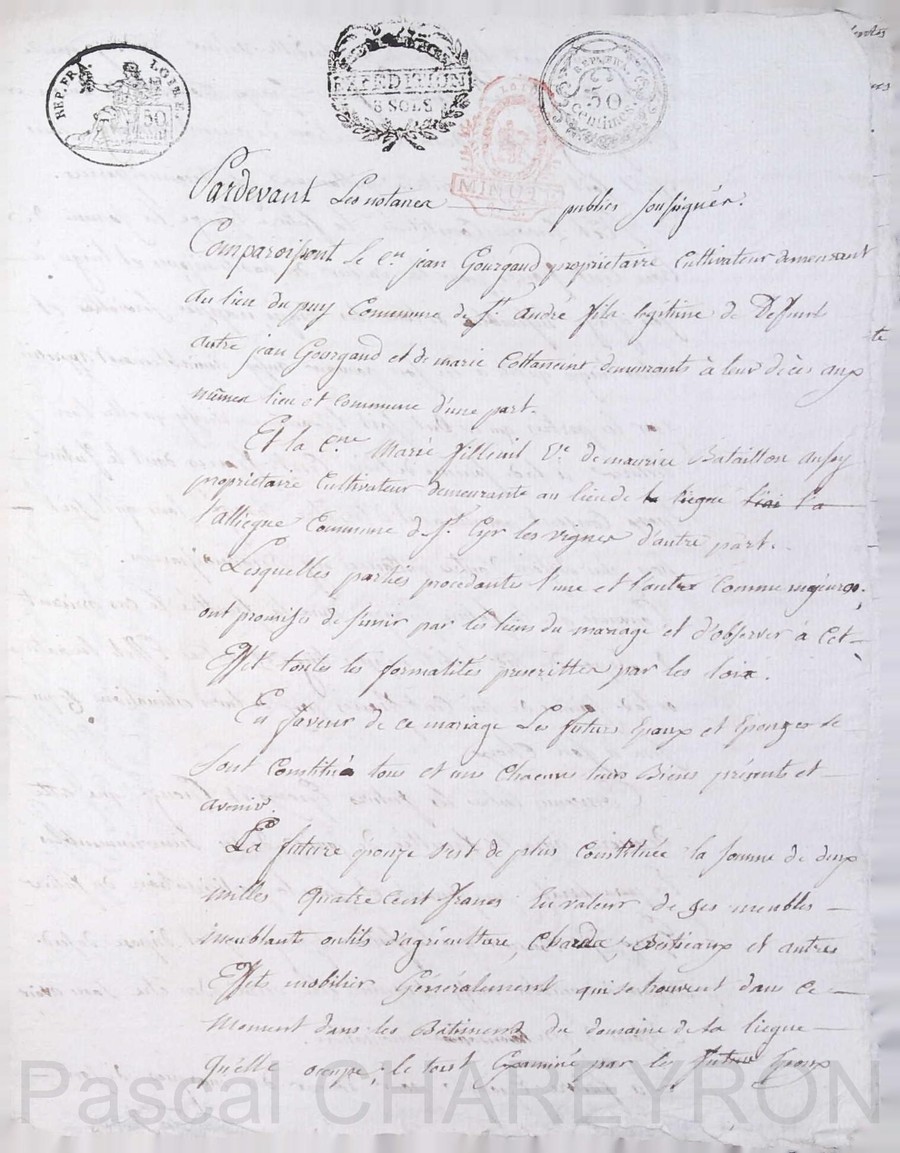 REP. FRA. LOIRE 50
EXPEDITION
8 SOLS
LOI
MINUTE
REP. FRA.
50
Centimes
Pardevant Les notaires publics soussignés.
Comparoissent le cen jean Gourgaud proprietaire Cultivateur demeurant
au lieu du puy Commune de St. andré fils légitime de Deffunt
autre jean Gourgaud et de marie demeurants à leur décès aux
mêmes lieu et commune d'une part.
Et la cene Marie filleul Ve de maurice Bataillon aussy
proprietaire Cultivateur demeurante au lieu de liegue
l'alliegue Commune de St. Cyr les vignes d'autre part.
Lesquelles parties procedante l'une et l'autre Comme majeures,
ont promises de s'unir par les liens du mariage et d'observer à cet
Effet toutes les formalités prescrittes par les loix.
En faveur de ce mariage Les futurs Epoux et Epouzes se
sont Constitués tous et uns Chacuns leurs Biens présents et
avenir.
La future épouze s'est de plus Constituée la somme de deux
milles quatre cent francs en valeur de ses meubles
meublants outils d'agriculture, Bestiaux et autres
Effets mobilier Généralement qui se trouvent dans ce
Moment dans les Bâtiments du domaine de la liegue
qu'elle occupe, le tout Examiné par le futur Epoux
Pascal CHAREYRON